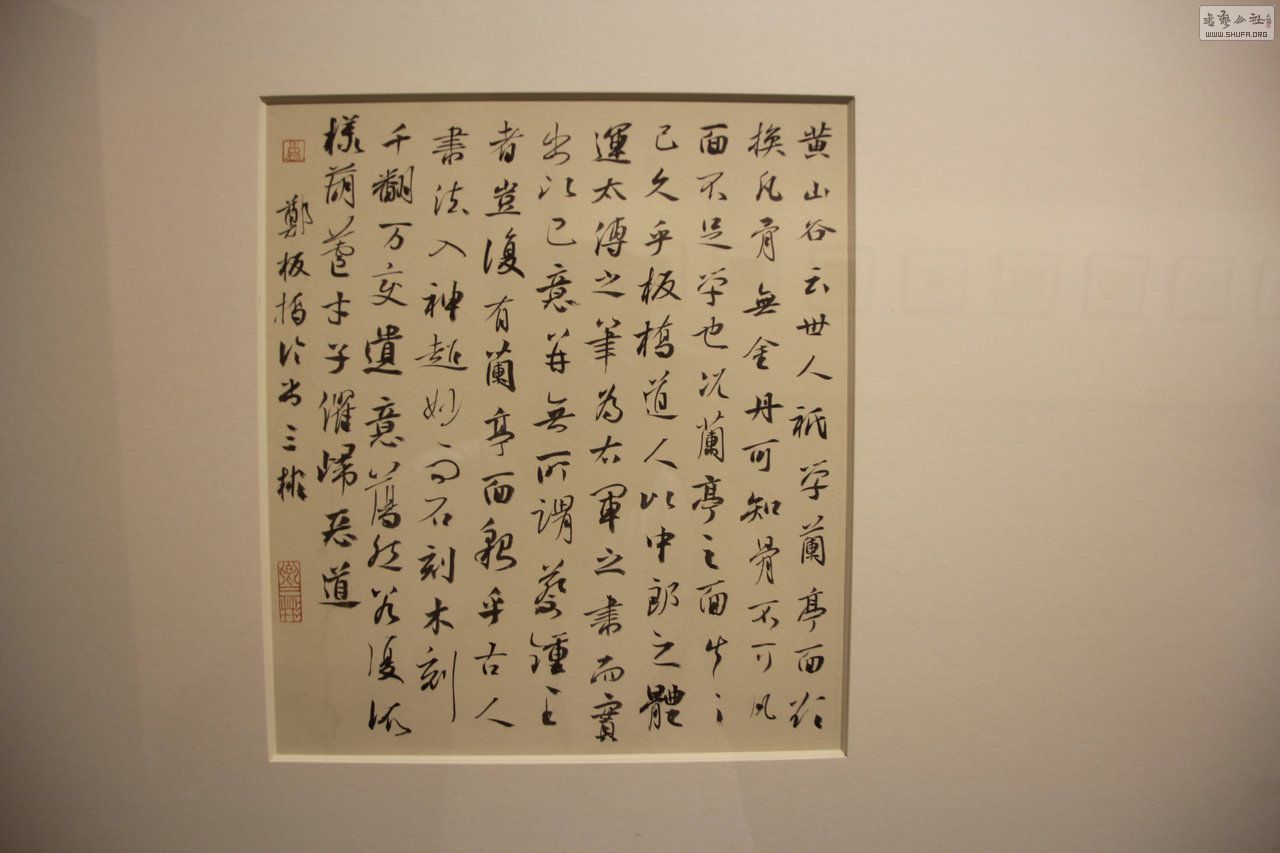 黄山谷云世人祇学蘭亭面欲
换凡骨無金丹可知骨不可凡
面不足学也况蘭亭之面失之
已久乎板橋道人以中郎之體
運太傅之筆為右軍之書而實
出以己意并無所謂蔡鍾王
者豈復有蘭亭面貌乎古人
書法入神超妙而石刻木刻
千翻万变遺意蕩然若復依
樣葫蘆才子俱歸恶道
鄭板橋论书三
書藝公社
WWW.SHUFA.ORG